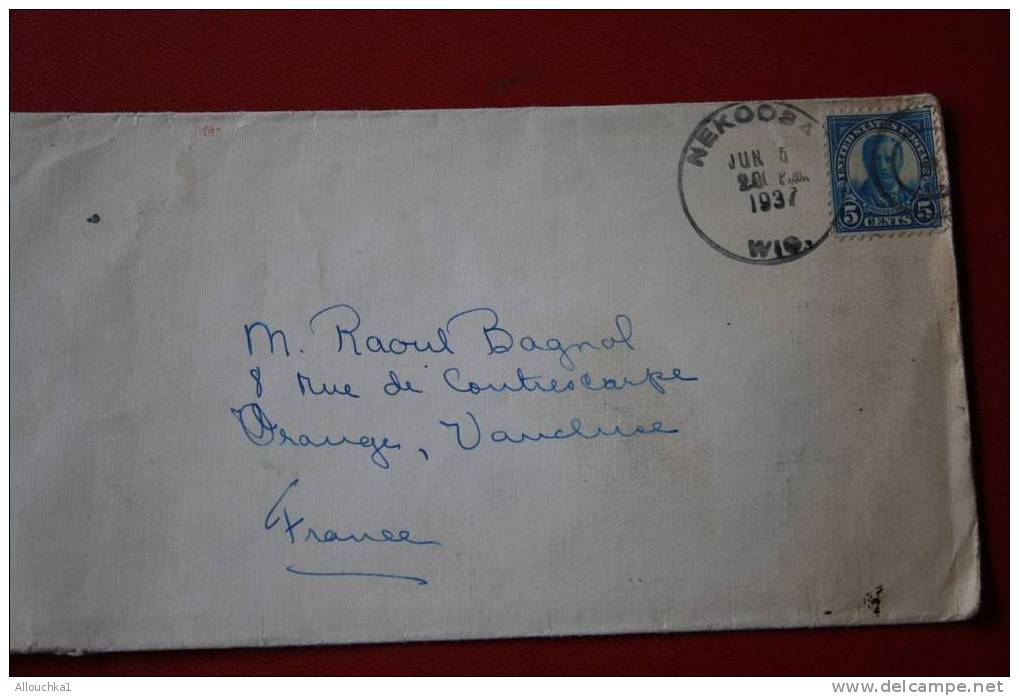 NEKOOSA
JUN 5
1937
WIS.
UNITED STATES POSTAGE
5 CENTS 5
M. Raoul Bagnol
8 rue de Contrescarpe
Orange, Vaucluse
France
Allouchka1
www.delcampe.net